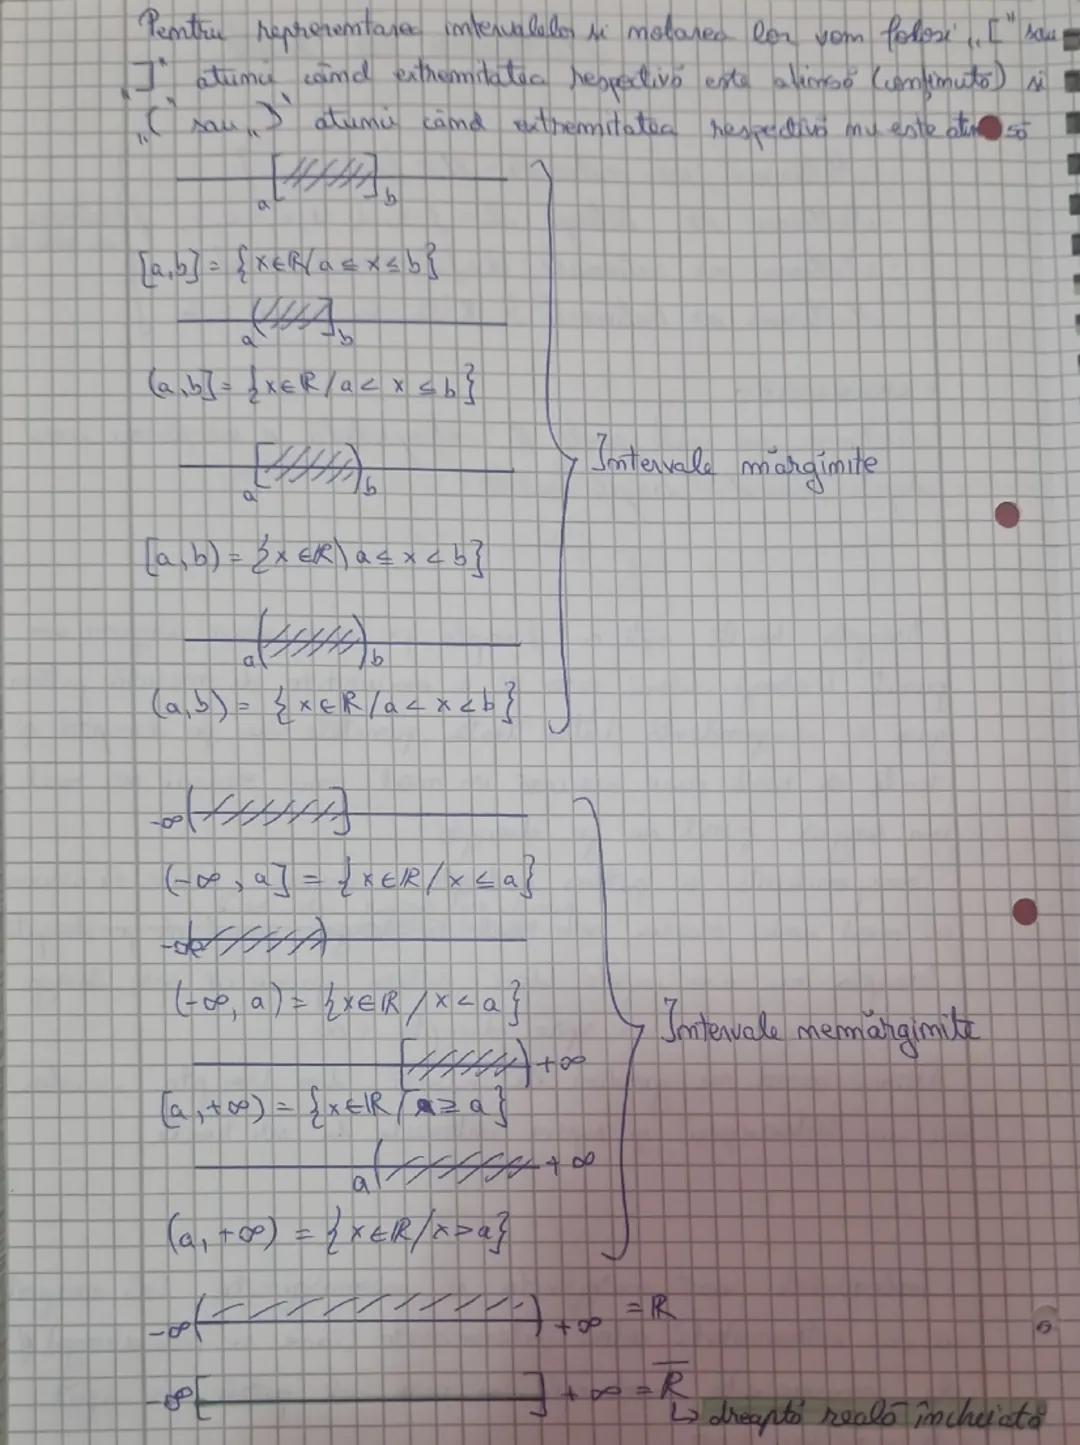 Pentru reprezentarea intervalelor si notarea lor vom folosi „[" sau
„]" atunci când extremitatea respectivă este atinsă (conținută) si
„(" sau „)" atunci când extremitatea respectivă nu este atinsă
a b
[a,b] = {x∈R/a≤x≤b}
a b
(a,b] = {x∈R/a< x ≤b}
a b
Intervale mărginite
[a,b) = {x∈R\a≤x<b}
a b
(a,b) = {x∈R/a<x<b}
-∞
(-∞, a] = {x∈R/x≤a}
-∞
(-∞, a) = {x∈R/x<a}
Intervale nemărginite
+∞
[a,+∞) = {x∈R/x≥a}
a +∞
(a,+∞) = {x∈R/x>a}
-∞ +∞ = R
-∞ +∞ = R̅
↳ dreaptă reală încheiată